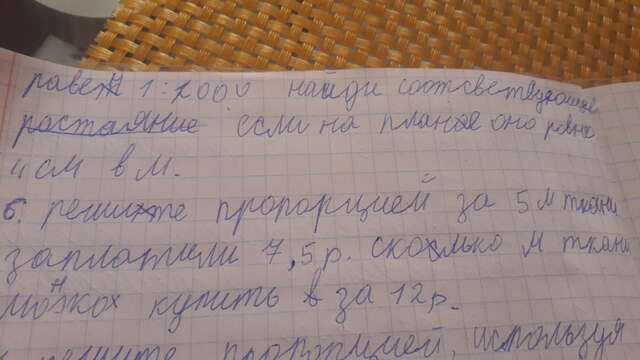 равен 1:2000 найди соответсвтвующее
растаяние если на плане оно ровно
4 см в м.
6. решите пропорцией за 5 м ткани
заплатили 7,5р. сколько м ткани
можно купить в за 12р.
решите пропорцией, используя